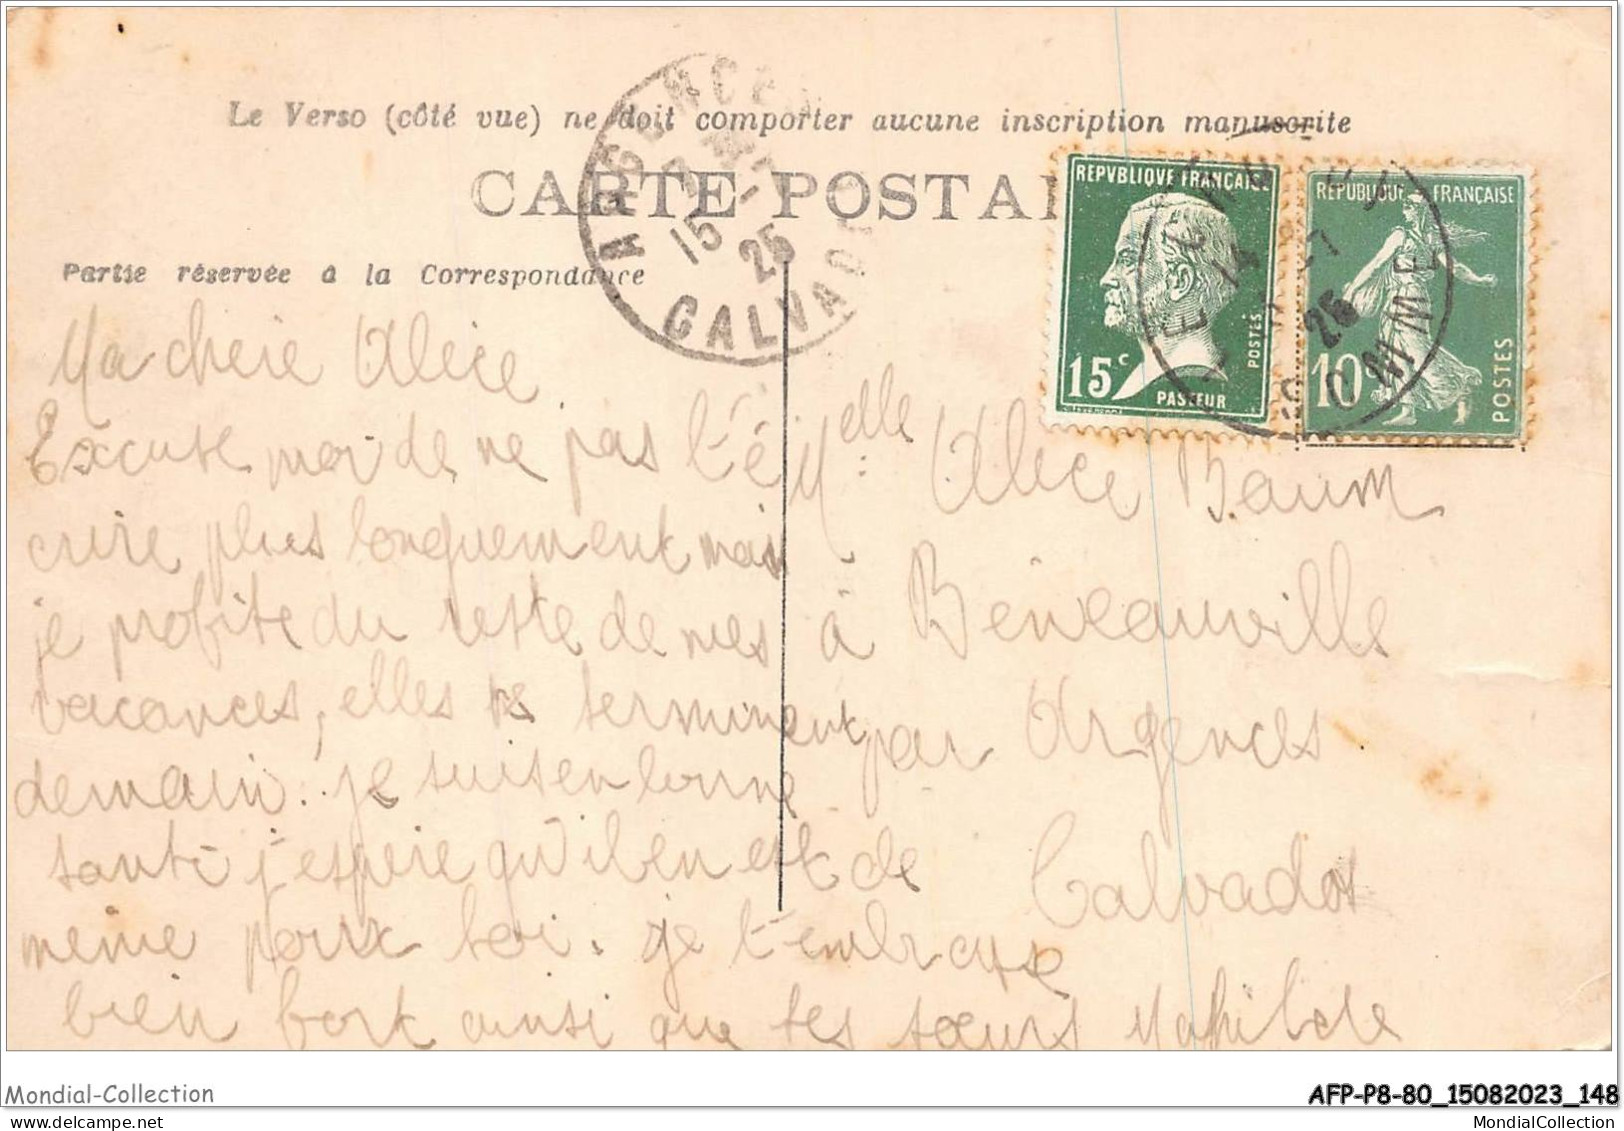 Le Verso (côté vue) ne doit comporter aucune inscription manuscrite
CARTE POSTAL
Partie réservée à la Correspondance
ARGENCES
15 - 7
25
CALVADOS
REPVBLIQVE FRANÇAISE
15c
POSTES
PASTEUR
REPUBLIQUE FRANÇAISE
10
POSTES
14 - 7
25
SOMME
Ma cherie Alice
Excuse moi de ne pas t'é
crire plus longuement mais
je profite du reste de mes
vacances, elles se terminent
demain. je suis en bonne
santé j'espere qu'il en est de
même pour toi. je t'embrasse
bien fort ainsi que tes sœurs
Melle Alice Baum
à Béneauville
par Argences
Calvados
Mondial-Collection
AFP-P8-80_15082023_148
MondialCollection